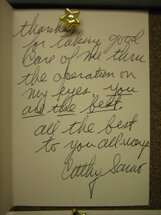 thanks
for taking good
care of me thru
the operation on
my eyes, you
are the best.
all the best
to you allways